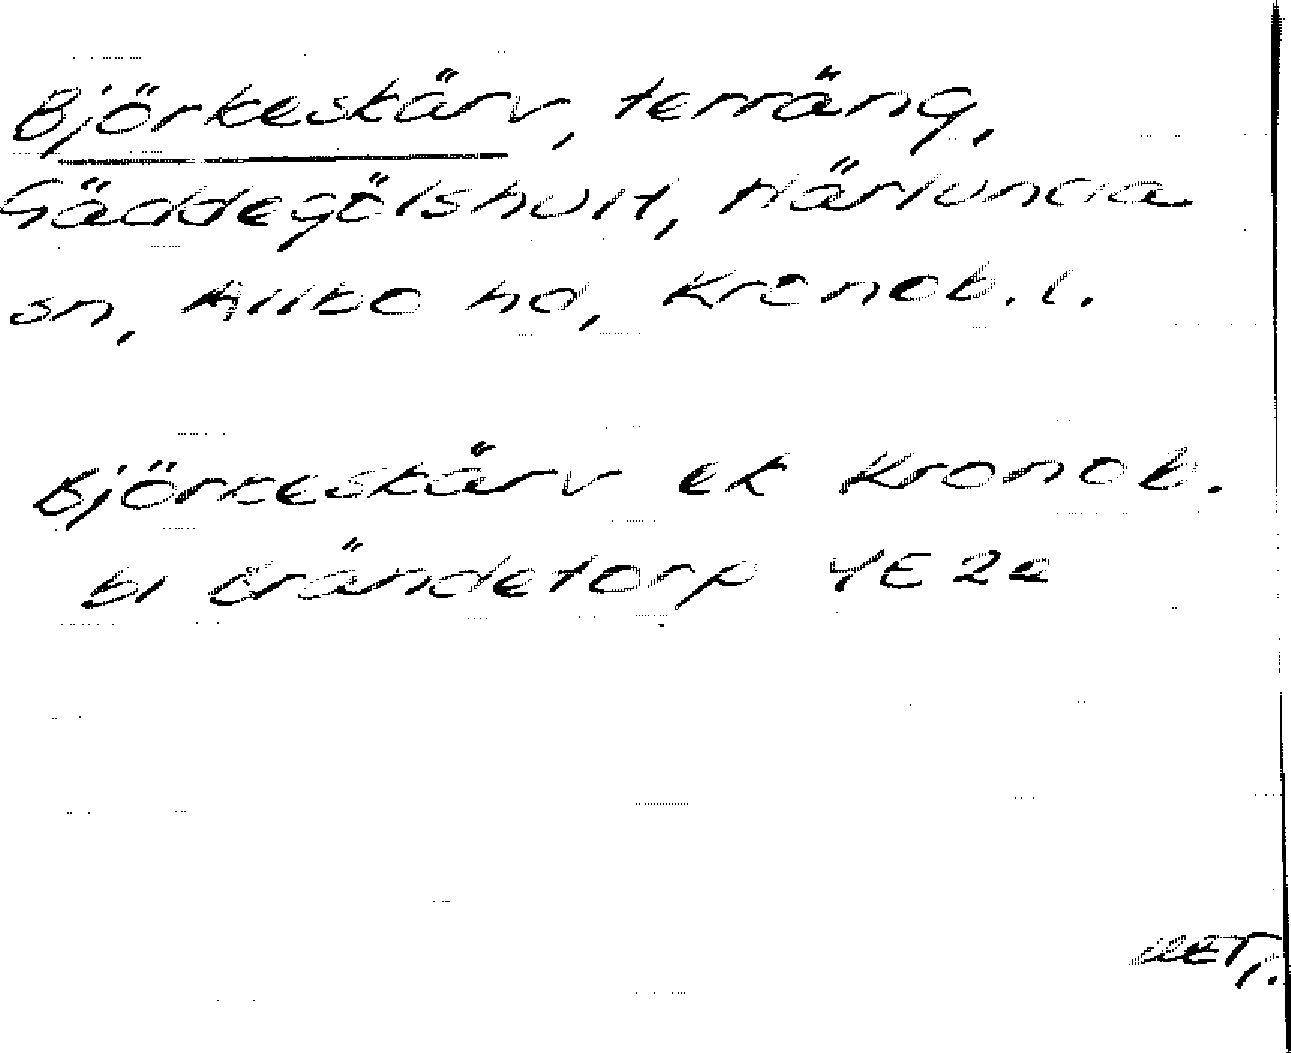 Björkeskärv, terräng,
Gäddegölshult, Härlunda
sn, Allbo hd, Kronob. l.
Björkeskärv ek Kronob.
bl Brändetorp 4E2e